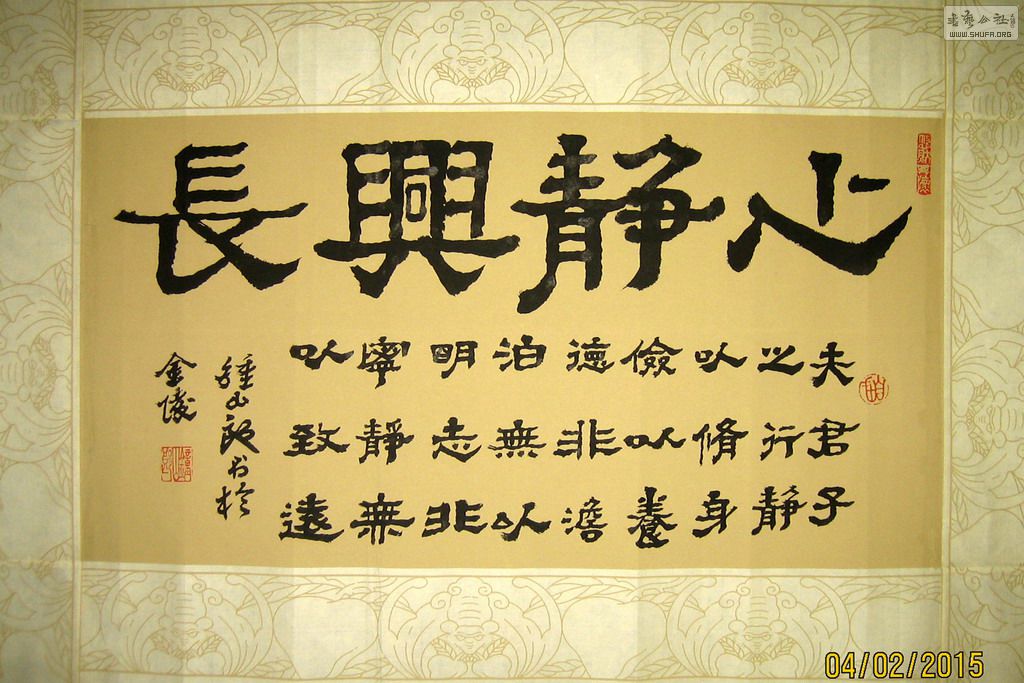 心静興長
夫君子
之行静
以脩身
儉以養
德非澹
泊無以
明志非
寧靜無
以致遠
鍾山
書於
金陵
書藝公社
WWW.SHUFA.ORG
04/02/2015